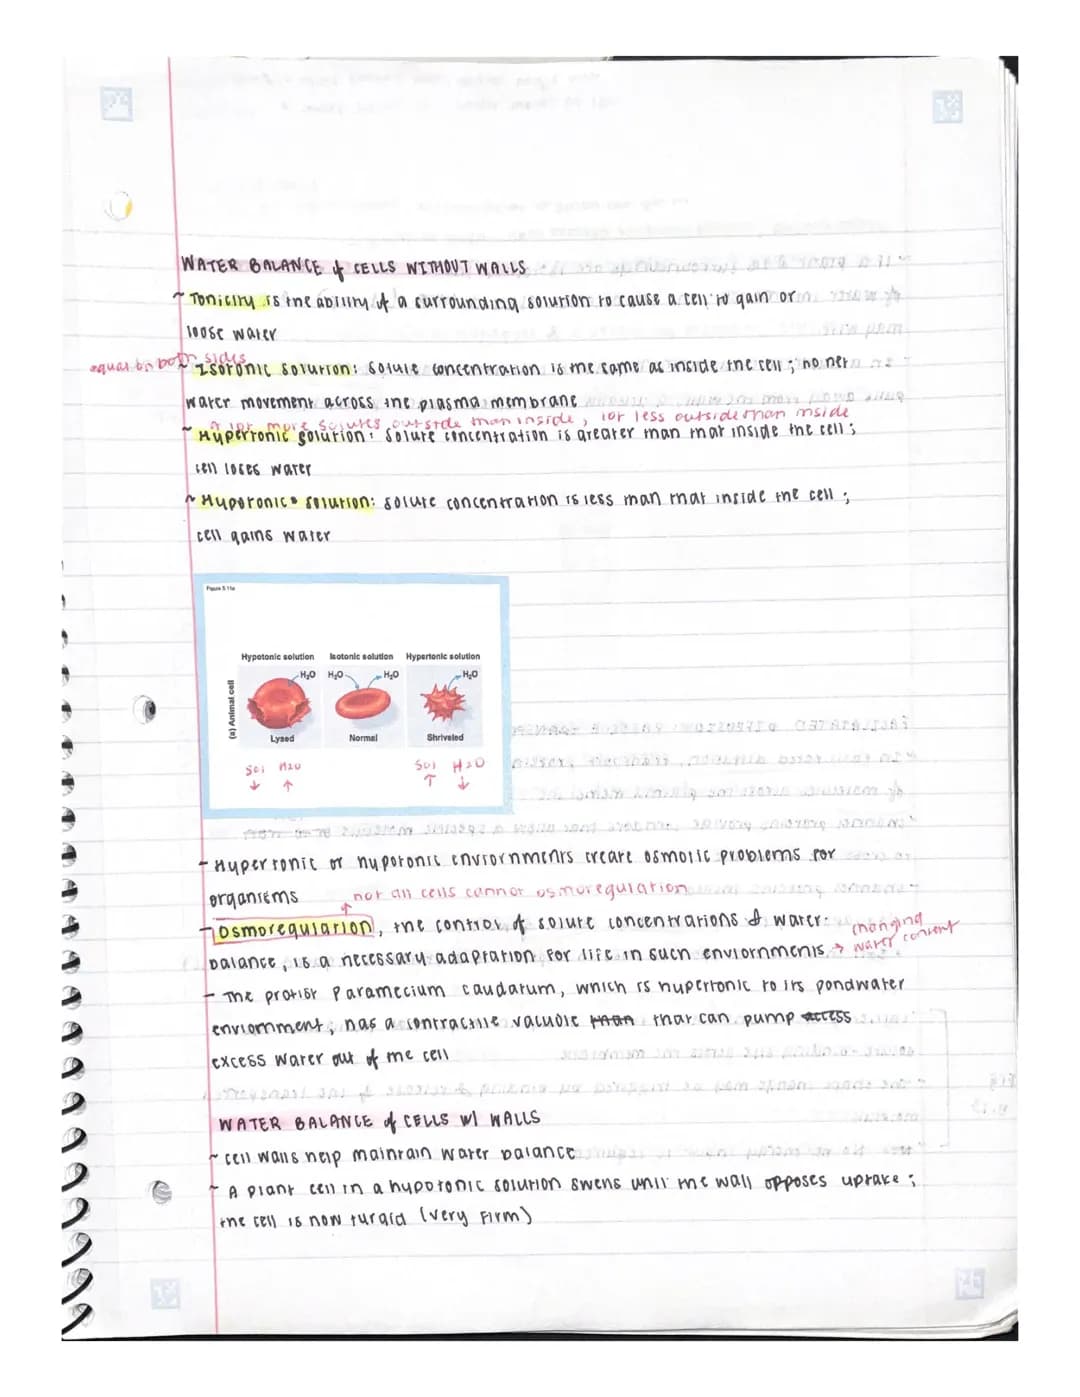 WATER BALANCE of CELLS WITHOUT WALLS
~ Tonicity is the ability of a surrounding solution to cause a cell to gain or
loose water
equal on both sides
~ Isotonic solution: solute concentration is the same as inside the cell; no net
water movement across the plasma membrane
↗ lot more solutes outside than inside, lot less outside than inside
~ Hypertonic solution: solute concentration is greater than that inside the cell;
cell loses water
~ Hypotonic solution: solute concentration is less than that inside the cell;
cell gains water
Figure 5.11a
Hypotonic solution Isotonic solution Hypertonic solution
H₂O H₂O H₂O H₂O
(a) Animal cell
Lysed Normal Shriveled
Sol H2O Sol H2O
↓ ↑ ↑ ↓
- Hypertonic or hypotonic enviornments create osmotic problems for
organisms
not all cells cannot osmoregulation
- Osmoregulation, the control of solute concentrations & water
changing
balance, is a necessary adaptation for life in such enviornments → water content
- The protist Paramecium caudatum, which is hupertonic to its pondwater
enviornment, has a contractile vacuole than that can pump access
excess water out of the cell
WATER BALANCE of CELLS W/ WALLS
~ cell walls help maintain water balance
~ A plant cell in a hypotonic solution swells until the wall opposes uptake;
the cell is now turgid (very firm)